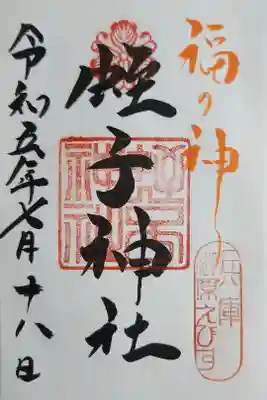 福の神
蛭子神社
兵庫
柳原えびす
令和五年七月十八日